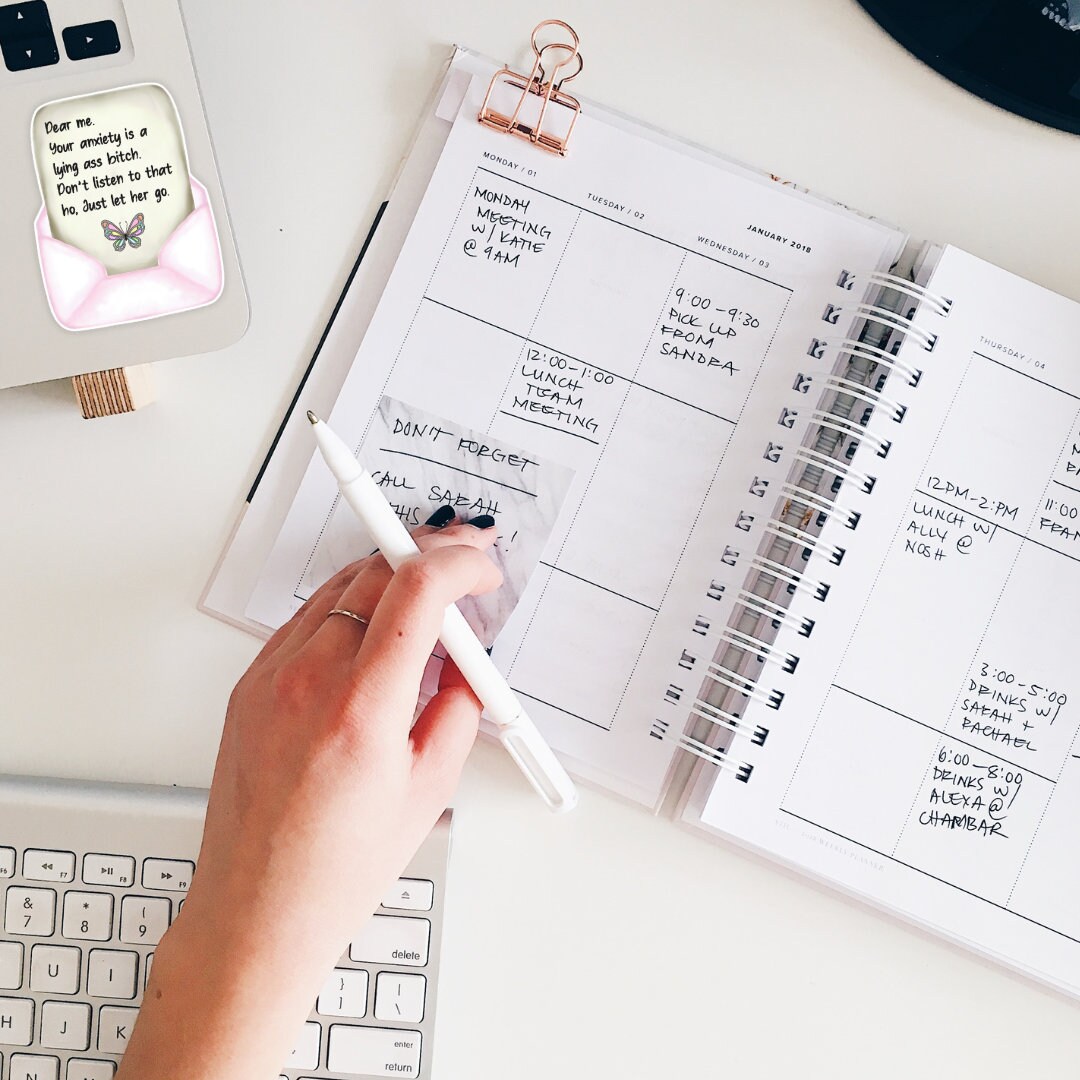 Dear me.
Your anxiety is a
lying ass bitch.
Don't listen to that
ho, Just let her go.
MONDAY / 01
MONDAY
MEETING
W/ KATIE
@ 9AM
TUESDAY / 02
12:00-1:00
LUNCH
TEAM
MEETING
JANUARY 2018
WEDNESDAY / 03
9:00-9:30
PICK UP
FROM
SANDRA
DON'T FORGET
CALL SARAH
THIS
!
THURSDAY / 04
12PM-2:PM
LUNCH W/
ALLY @
NOSH
11:00
3:00-5:00
DRINKS W/
SARAH +
RACHAEL
6:00-8:00
DRINKS W/
ALEXA @
CHAMBAR
F6
F7
F8
F9
&
7
*
8
(
9
U
I
}
]
|
\
delete
H
J
K
enter
return
N
M